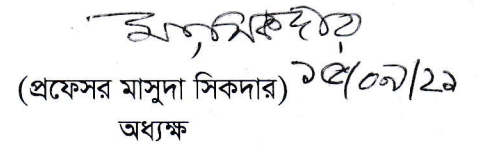 মাসুদা সিকদার
(প্রফেসর মাসুদা সিকদার) ১৫/০৭/২১
অধ্যক্ষ